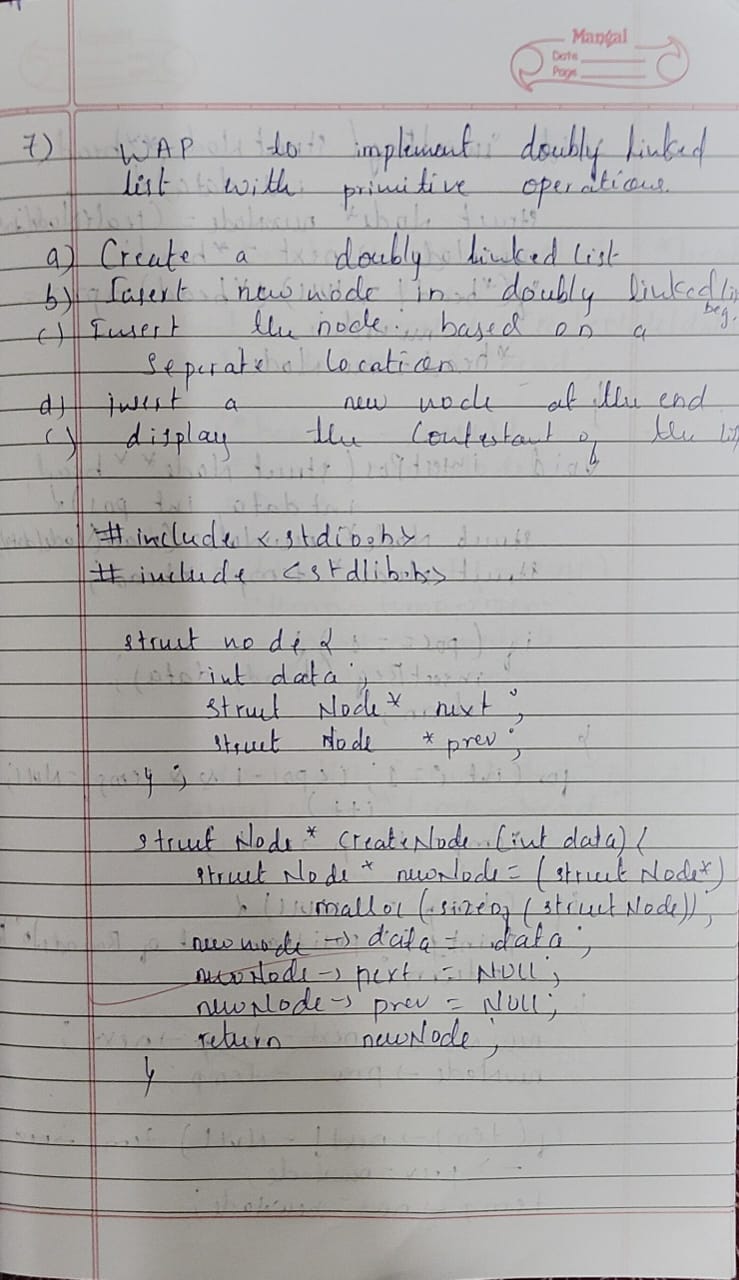 Mangal
Date
Page
7) WAP to implement doubly linked
list with primitive operations.
a) Create a doubly linked list
b) Insert new node in doubly linked li
beg.
c) Insert the node based on a
seperate location
d) insert a new node at the end
c) display the Contestant of the li
#include <stdio.h>
#include <stdlib.h>
struct node {
int data;
struct Node* next;
struct Node *prev;
};
struct Node* createNode (int data) {
struct Node* newNode = (struct Node*)
malloc (sizeof (struct Node));
newnode -> data = data;
newNode -> next = NULL;
newNode -> prev = NULL;
return newNode;
}